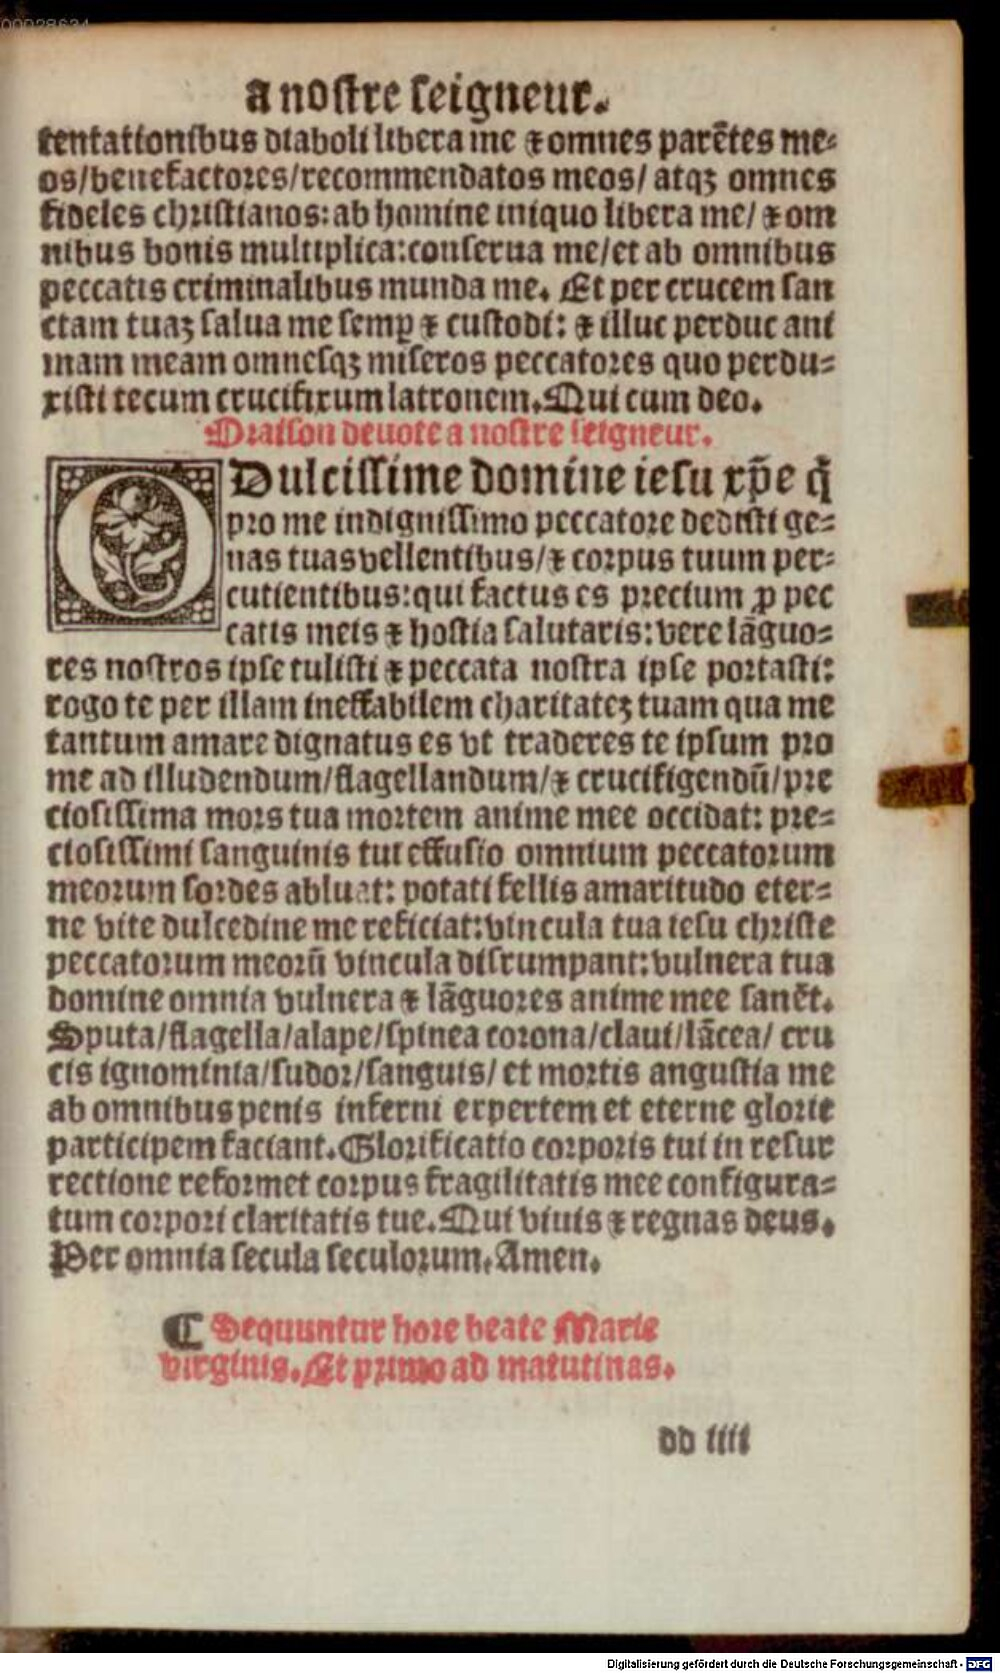 00028634
a nostre seigneur.
tentationibus diaboli libera me ⁊ omnes parẽtes me⸗
os/benefactores/recommendatos meos/ atqꝫ omnes
fideles christianos: ab homine iniquo libera me/ ⁊ om
nibus bonis multiplica: conserua me/et ab omnibus
peccatis criminalibus munda me. Et per crucem san
ctam tuaꝫ salua me semꝑ ⁊ custodi: ⁊ illuc perduc ani
mam meam omnesqꝫ miseros peccatores quo perdu⸗
xisti tecum crucifixum latronem. Qui cum deo.
Oraison deuote a nostre seigneur.
O Dulcissime domine iesu xp̃e q̃
pro me indignissimo peccatore dedisti ge⸗
nas tuas vellentibus/⁊ corpus tuum per⸗
cutientibus: qui factus es precium ꝓ pec
catis meis ⁊ hostia salutaris: vere lãguo⸗
res nostros ipse tulisti ⁊ peccata nostra ipse portasti:
rogo te per illam ineffabilem charitateꝫ tuam qua me
tantum amare dignatus es vt traderes te ipsum pro
me ad illudendum/flagellandum/⁊ crucifigendũ/pre
ciosissima mors tua mortem anime mee occidat: pre⸗
ciosissimi sanguinis tui effusio omnium peccatorum
meorum sordes abluat: potati fellis amaritudo eter⸗
ne vite dulcedine me reficiat: vincula tua iesu christe
peccatorum meorũ vincula disrumpant: vulnera tua
domine omnia vulnera ⁊ lãguores anime mee sanẽt.
Sputa/flagella/alape/spinea corona/claui/lãcea/ cru
cis ignominia/sudor/sanguis/ et mortis angustia me
ab omnibus penis inferni expertem et eterne glorie
participem faciant. Glorificatio corporis tui in resur
rectione reformet corpus fragilitatis mee configura⸗
tum corpori claritatis tue. Qui viuis ⁊ regnas deus.
Per omnia secula seculorum. Amen.
⸿ Sequuntur hore beate Marie
virginis. Et primo ad matutinas.
dd iiii
Digitalisierung gefördert durch die Deutsche Forschungsgemeinschaft - DFG